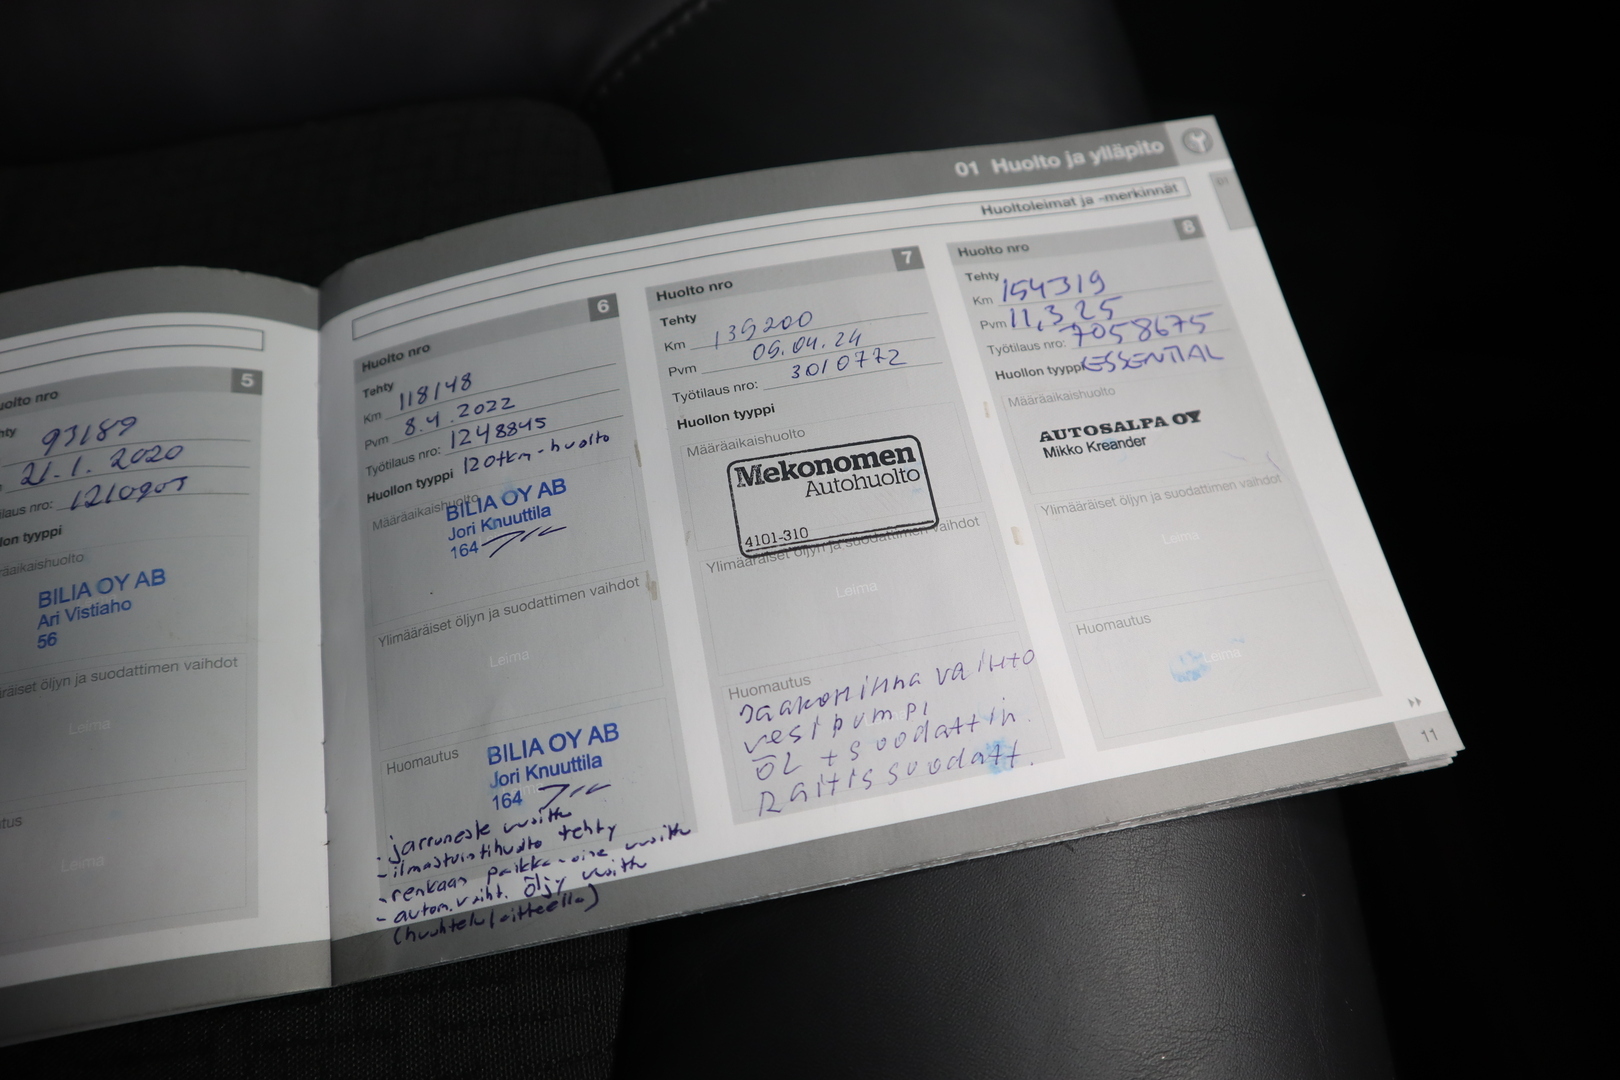 01 Huolto ja ylläpito
Huoltoleimat ja -merkinnät
01
5
uolto nro
hty
93189
21.1. 2020
laus nro:
llon tyyppi
äräaikaishuolto
BILIA OY AB
Ari Vistiaho
56
äräiset öljyn ja suodattimen vaihdot
Leima
tus
Leima
6
Huolto nro
Tehty
Km 118148
Pvm 8.4.2022
Työtilaus nro: 1248845
Huollon tyyppi 120tkm-huolto
Määräaikaishuolto
BILIA OY AB
Jori Knuuttila
164
Ylimääräiset öljyn ja suodattimen vaihdot
Leima
Huomautus
BILIA OY AB
Jori Knuuttila
164
- jarruneste uusittu
- ilmastointihuolto tehty
- renkaan paikka-aine uusittu
- autom.vaiht. öljy uusittu
(huuhtelulaitteella)
7
Huolto nro
Tehty
Km 139200
Pvm 09.04.24
Työtilaus nro: 3010772
Huollon tyyppi
Määräaikaishuolto
Mekonomen
Autohuolto
4101-310
Ylimääräiset öljyn ja suodattimen vaihdot
Leima
Huomautus
Jakohihna vaihto
vesipumpi
ÖL + suodattin.
Raitissuodatt.
8
Huolto nro
Tehty
Km 154319
Pvm 11.3.25
Työtilaus nro: 7058675
Huollon tyyppi ESSENTIAL
Määräaikaishuolto
AUTOSALPA OY
Mikko Kreander
Ylimääräiset öljyn ja suodattimen vaihdot
Leima
Huomautus
Leima
11